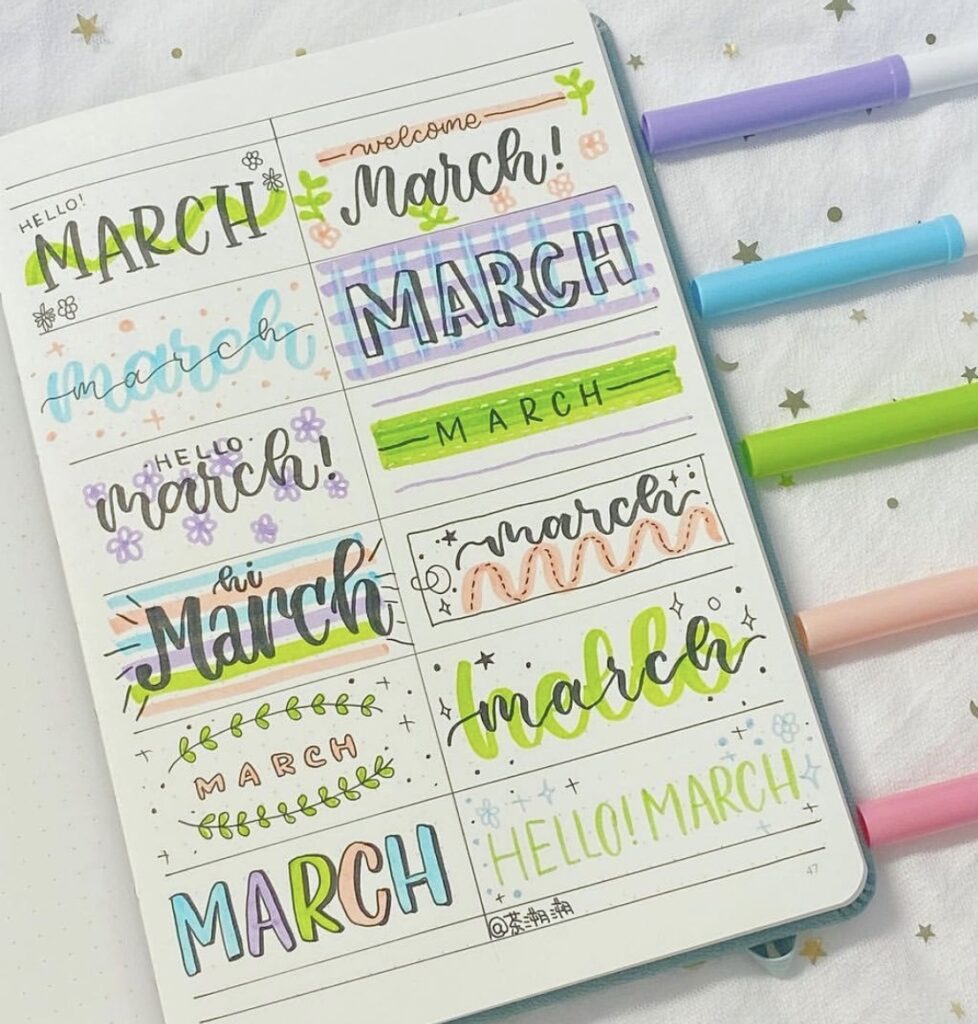 HELLO!
MARCH
march
march
HELLO
march!
hi
March
MARCH
MARCH
welcome
March!
MARCH
MARCH
march
hello
march
HELLO! MARCH
47
@茶潮潮